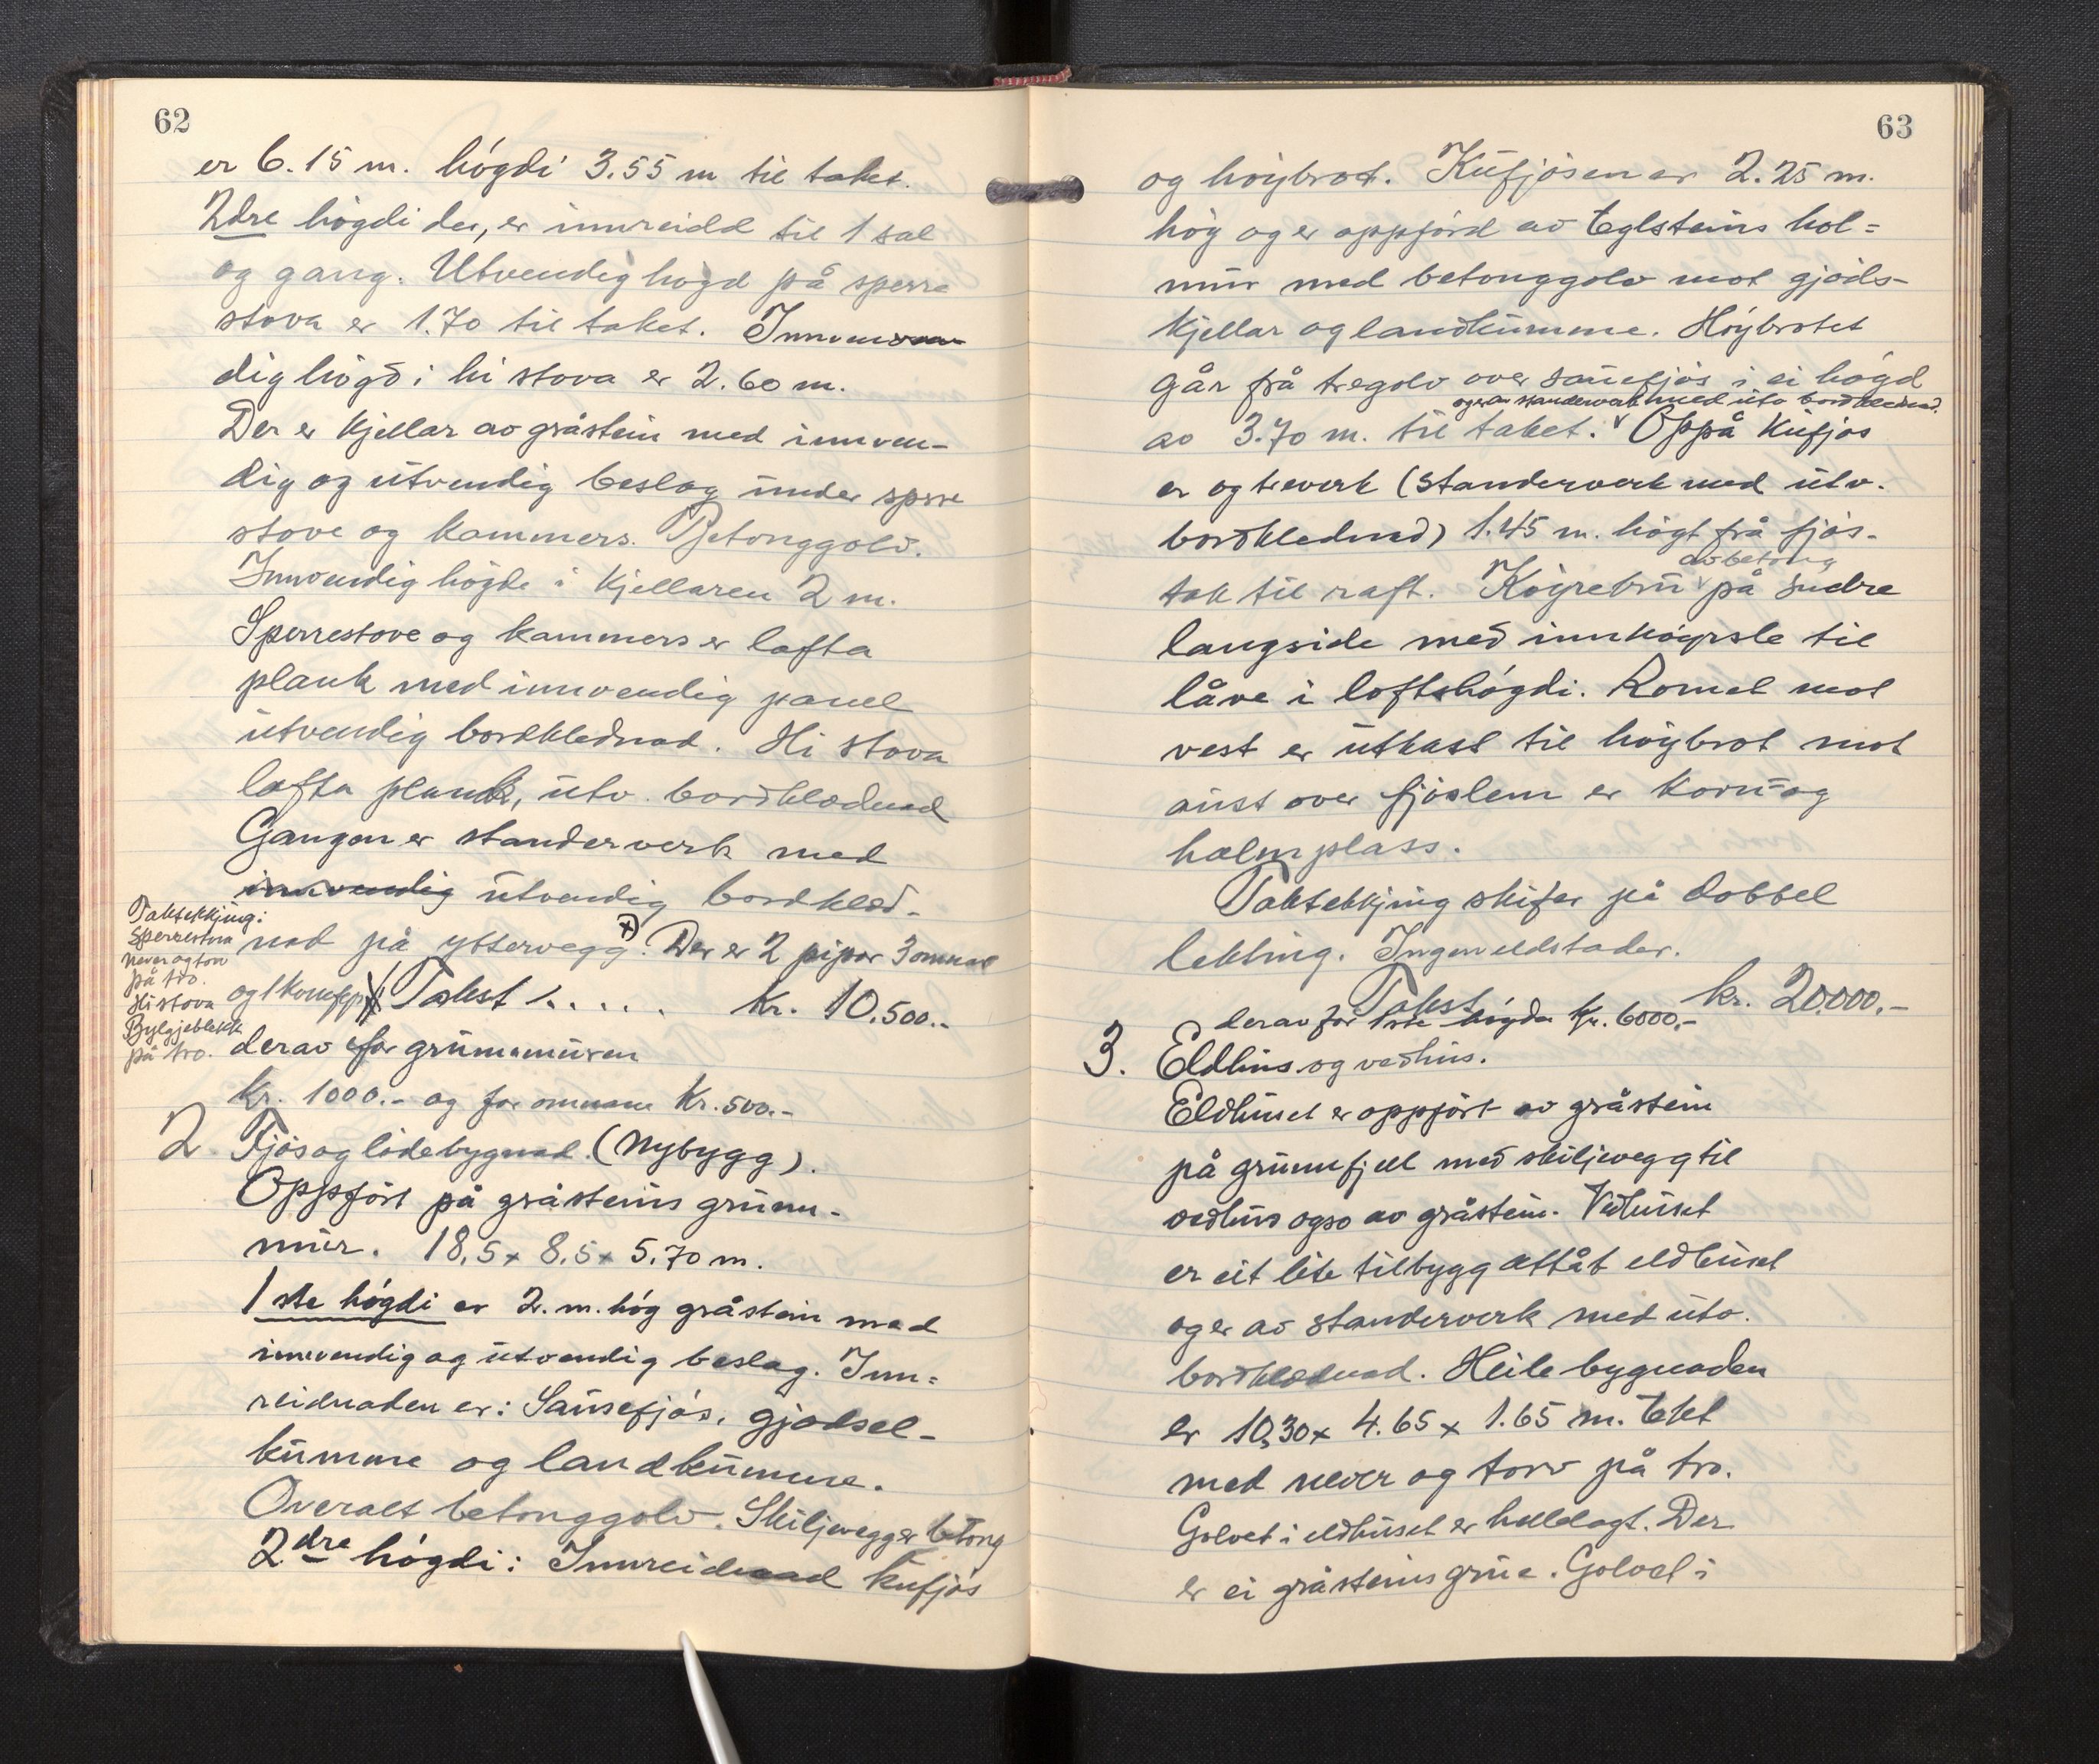 62
er 6.15 m. högdi 3.55 m til taket.
2dre högdi der, er innreidd til 1 sal
og gang. Utvendig högd på sperre
stova er 1.70 til taket. Innven
dig högd i hi stova er 2.60 m.
Der er kjellar av gråstein med innven-
dig og utvendig beslag under sperre
stove og kammers. Betonggolv.
Innvendig högde i kjellaren 2 m.
Sperrestove og kammers er lafta
plank med innvendig panel
utvendig bordklednad. Hi stova
lafta plank, utv. bordklædnad
Gangen er standerverk med
innvendig utvendig bordklæd-
nad på yttervegg. x) Der er 2 pipor 3 omnar
og 1 komfyr Takst 1..... Kr. 10.500.-
Taktekkjing:
Sperrestova
never og torv
på tro.
Hi stova
Bylgjeblekk
på tro.
derav for grunnmuren
kr. 1000.- og for omnane Kr. 500.-
2. Fjös og lödebygnad (Nybygg).
Oppfört på gråsteins grunn-
mur. 18,5 x 8,5 x 5.70 m.
1ste högdi er 2. m. hög gråstein med
innvendig og utvendig beslag. Inn=
reidnaden er: Sauefjös, gjödsel-
kumme og landkumme.
Overalt betonggolv. Skiljevegger betong
2dre högdi: Innreidnad kufjös
63
og höybrot. Kufjösen er 2.25 m.
hög og er oppförd av teglsteins hol=
mur med betonggolv mot gjöds-
kjellar og landkumme. Höybrotet
går frå tregolv over sauefjös i ei högd
og er av standerverk med utv bordklednad.
av 3.70 m. til taket. v Oppå kufjös
er og treverk (standerverk med utv.
bordklednad) 1.45 m. högt frå fjös-
av betong
tak til raft. Köyrebru v på sudre
langside med innköyrsle til
låve i loftshögdi. Romet mot
vest er utkast til höybrot mot
aust over fjöslem er korn og
halmplass.
Taktekkjing skifer på dobbel
lekting. Ingen eldstader.
Takst kr. 20000.-
derav for 1ste högda Kr. 6000.-
3. Eldhus og vedhus.
Eldhuset er oppfört av gråstein
på grunnfjell med skiljevegg til
vedhus ogso av gråstein. Vedhuset
er eit lite tilbygg attåt eldhuset
og er av standerverk med utv.
bordklædnad. Heile bygnaden
er 10,30 x 4.65 x 1.65 m. Tekt
med never og torv på tro.
Golvet i eldhuset er hellelagt. Der
er ei gråsteins grue. Golvet i